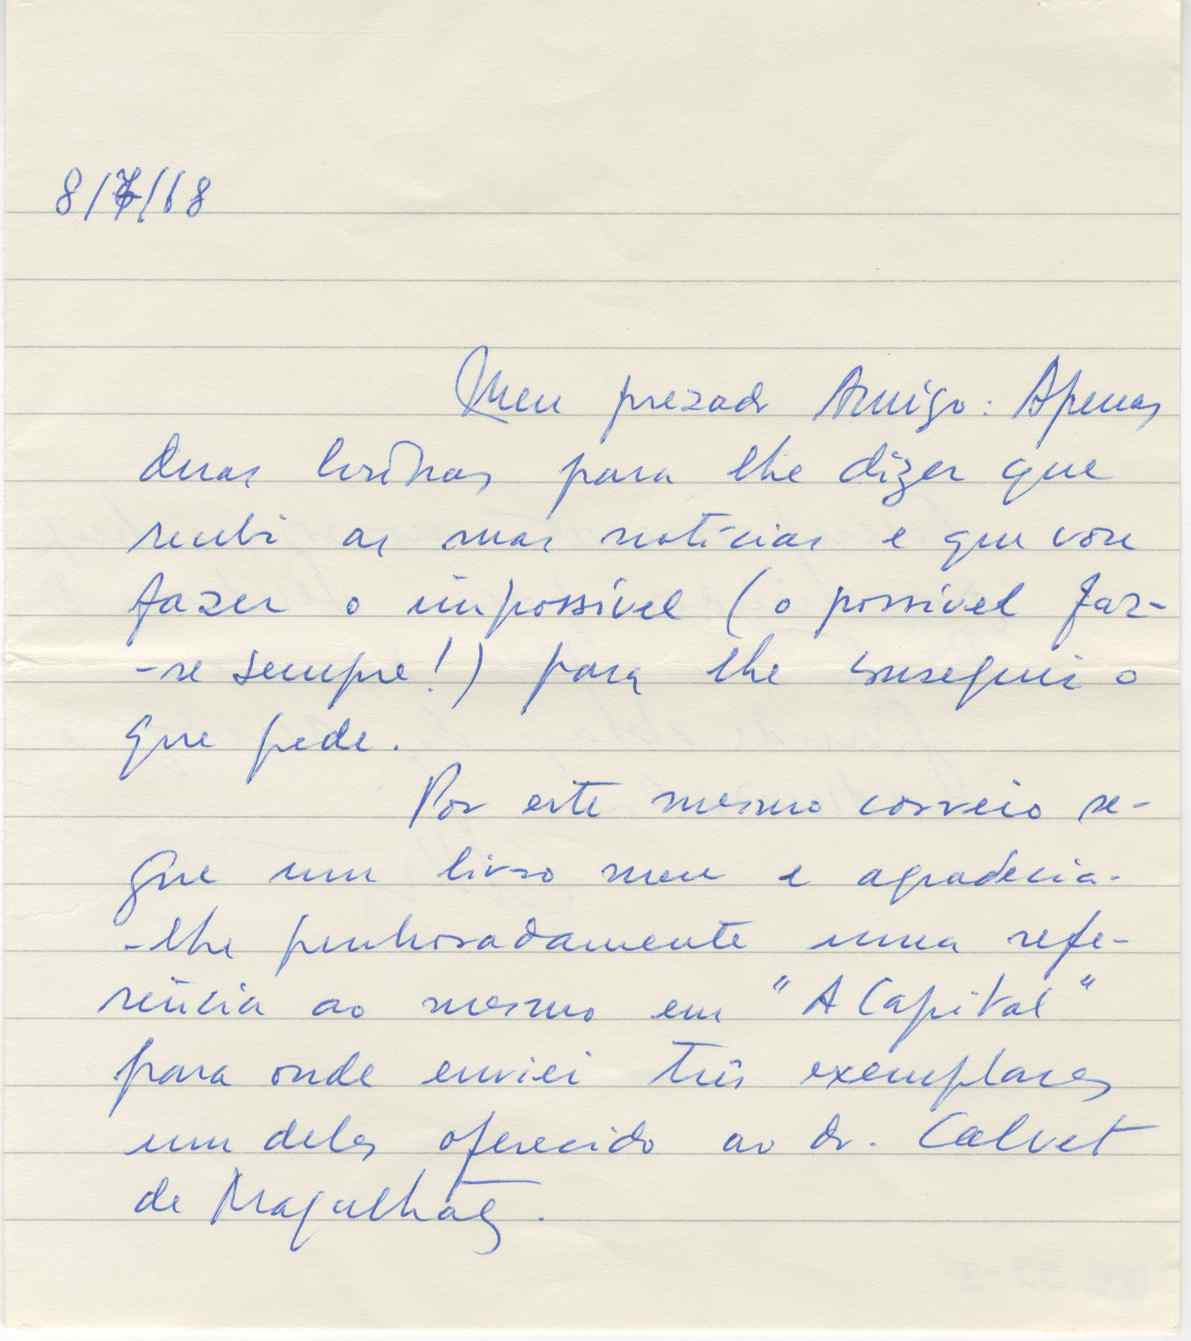 8/7/68
Meu prezado Amigo: Apenas
duas linhas para lhe dizer que
recebi as suas notícias e que vou
fazer o impossível (o possível faz-
-se sempre!) para lhe conseguir o
que pede.
Por este mesmo correio se-
gue um livro meu e agradecia-
-lhe penhoradamente uma refe-
rência ao mesmo em "A Capital"
para onde enviei três exemplares
um deles oferecido ao dr. Calvet
de Magalhães.